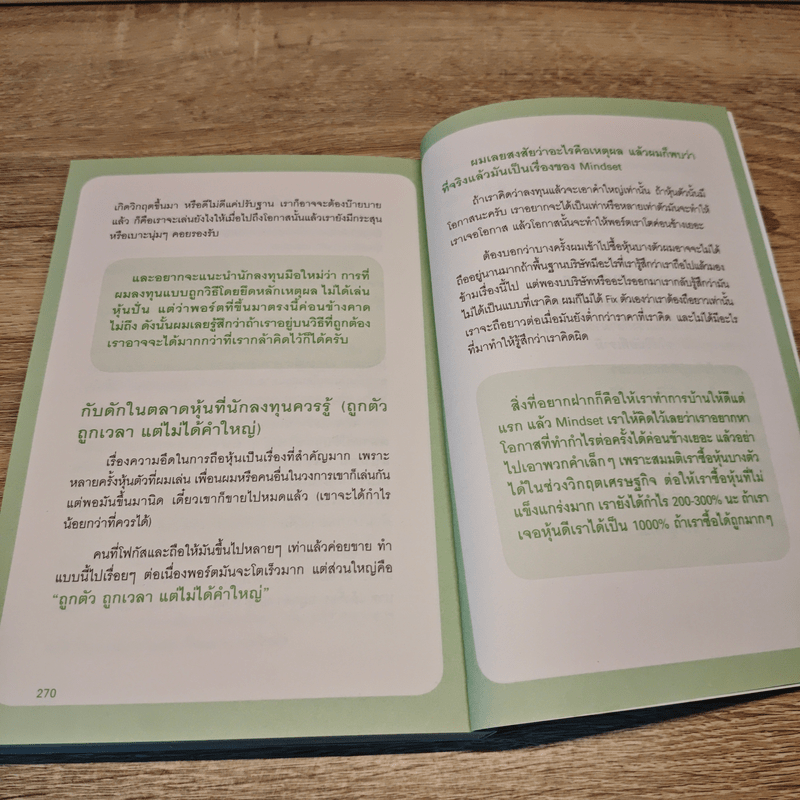 เกิดวิกฤตขึ้นมา หรือดีไม่ดีแค่ปรับฐาน เราก็อาจจะต้องบ๊ายบาย
แล้ว ก็คือเราจะเล่นยังไงให้เมื่อไปถึงโอกาสนั้นแล้วเรายังมีกระสุน
หรือเบาะนุ่มๆ คอยรองรับ
และอยากจะแนะนำนักลงทุนมือใหม่ว่า การที่
ผมลงทุนแบบถูกวิธีโดยยึดหลักเหตุผล ไม่ได้เล่น
หุ้นปั่น แต่ว่าพอร์ตที่ขึ้นมาตรงนี้ค่อนข้างคาด
ไม่ถึง ดังนั้นผมเลยรู้สึกว่าถ้าเราอยู่บนวิธีที่ถูกต้อง
เราอาจจะได้มากกว่าที่เรากล้าคิดไว้ก็ได้ครับ
กับดักในตลาดหุ้นที่นักลงทุนควรรู้ (ถูกตัว
ถูกเวลา แต่ไม่ได้คำใหญ่)
เรื่องความอึดในการถือหุ้นเป็นเรื่องที่สำคัญมาก เพราะ
หลายครั้งหุ้นตัวที่ผมเล่น เพื่อนผมหรือคนอื่นในวงการเขาก็เล่นกัน
แต่พอมันขึ้นมานิด เดี๋ยวเขาก็ขายไปหมดแล้ว (เขาจะได้กำไร
น้อยกว่าที่ควรได้)
คนที่โฟกัสและถือให้มันขึ้นไปหลายๆ เท่าแล้วค่อยขาย ทำ
แบบนี้ไปเรื่อยๆ ต่อเนื่องพอร์ตมันจะโตเร็วมาก แต่ส่วนใหญ่คือ
“ถูกตัว ถูกเวลา แต่ไม่ได้คำใหญ่”
270
ผมเลยสงสัยว่าอะไรคือเหตุผล แล้วผมก็พบว่า
ที่จริงแล้วมันเป็นเรื่องของ Mindset
ถ้าเราคิดว่าลงทุนแล้วจะเอาคำใหญ่เท่านั้น ถ้าหุ้นตัวนั้นมี
โอกาสนะครับ เราอยากจะได้เป็นเท่าหรือหลายเท่าตัวมันจะทำให้
เราเจอโอกาส แล้วโอกาสนั้นจะทำให้พอร์ตเราโตค่อนข้างเยอะ
ต้องบอกว่าบางครั้งผมเข้าไปซื้อหุ้นบางตัวผมอาจจะไม่ได้
ถืออยู่นานมากถ้าพื้นฐานบริษัทมีอะไรที่เรารู้สึกว่าเราถือไปแล้วมอง
ข้ามเรื่องนี้ไป แต่พองบบริษัทหรืออะไรออกมาเรากลับรู้สึกว่ามัน
ไม่ได้เป็นแบบที่เราคิด ผมก็ไม่ได้ Fix ตัวเองว่าเราต้องถือยาวเท่านั้น
เราจะถือยาวต่อเมื่อมันยังต่ำกว่าราคาที่เราคิด และไม่ได้มีอะไร
ที่มาทำให้รู้สึกว่าเราคิดผิด
สิ่งที่อยากฝากก็คือให้เราทำการบ้านให้ดีแต่
แรก แล้ว Mindset เราให้คิดไว้เลยว่าเราอยากหา
โอกาสที่ทำกำไรต่อครั้งได้ค่อนข้างเยอะ แล้วอย่า
ไปเอาพวกคำเล็กๆ เพราะสมมติเราซื้อหุ้นบางตัว
ได้ในช่วงวิกฤตเศรษฐกิจ ต่อให้เราซื้อหุ้นที่ไม่
แข็งแกร่งมาก เรายังได้กำไร 200-300% นะ ถ้าเรา
เจอหุ้นดีเราได้เป็น 1000% ถ้าเราซื้อได้ถูกมากๆ